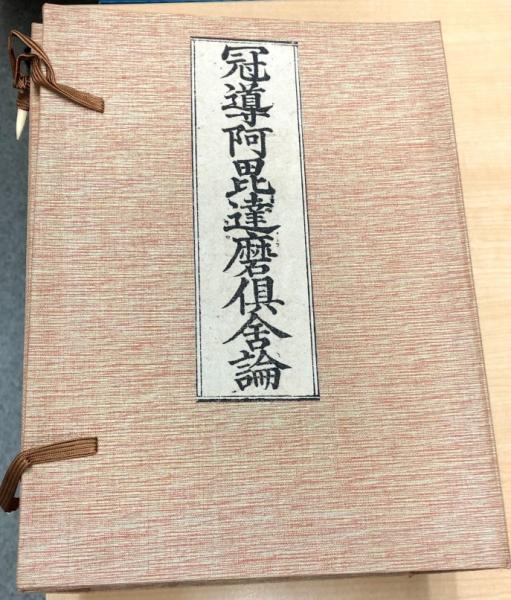 冠導阿毘達磨倶舍論